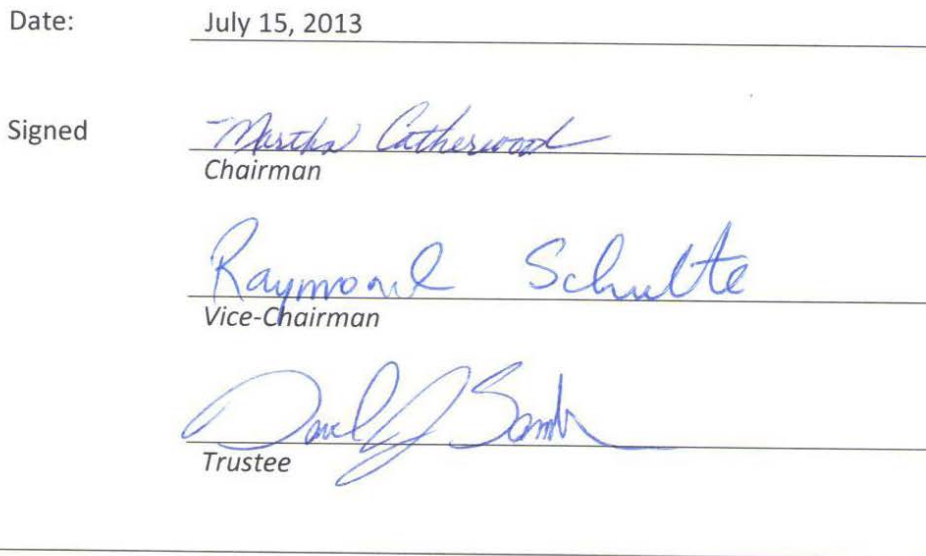 Date: July 15, 2013
Signed Martha Catherwood
Chairman
Raymond Schulte
Vice-Chairman
J
Trustee